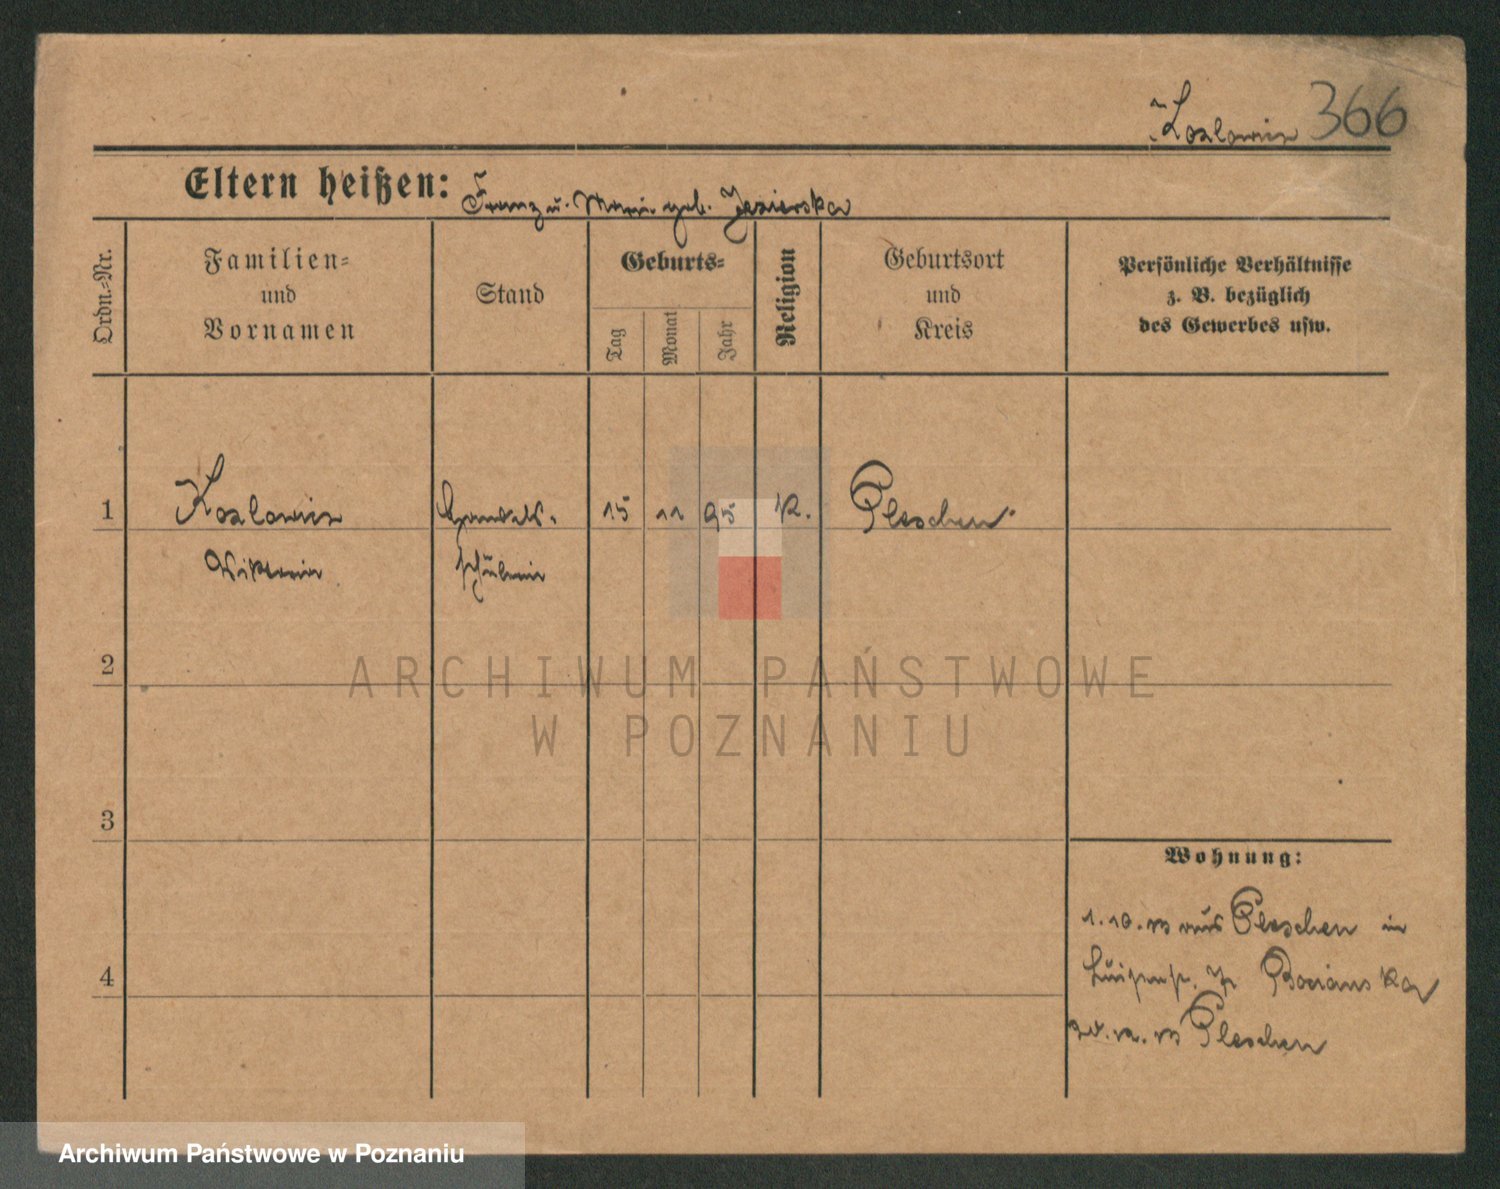 Kozlowicz 366
Eltern heißen: Franz u. Marie geb. Jezierska
Ordn.=Nr.
Familien=
und
Vornamen
Stand
Geburts=
Tag
Monat
Jahr
Religion
Geburtsort
und
Kreis
Persönliche Verhältnisse
z. B. bezüglich
des Gewerbes usw.
1 Handels- 15 11 95 k. Pleschen
Wiktoria schülerin
2
ARCHIWUM PAŃSTWOWE
W POZNANIU
3
Wohnung:
1. 10. 13 aus Pleschen in
Luisenstr. Bocianska
4
13 Pleschen
Archiwum Państwowe w Poznaniu